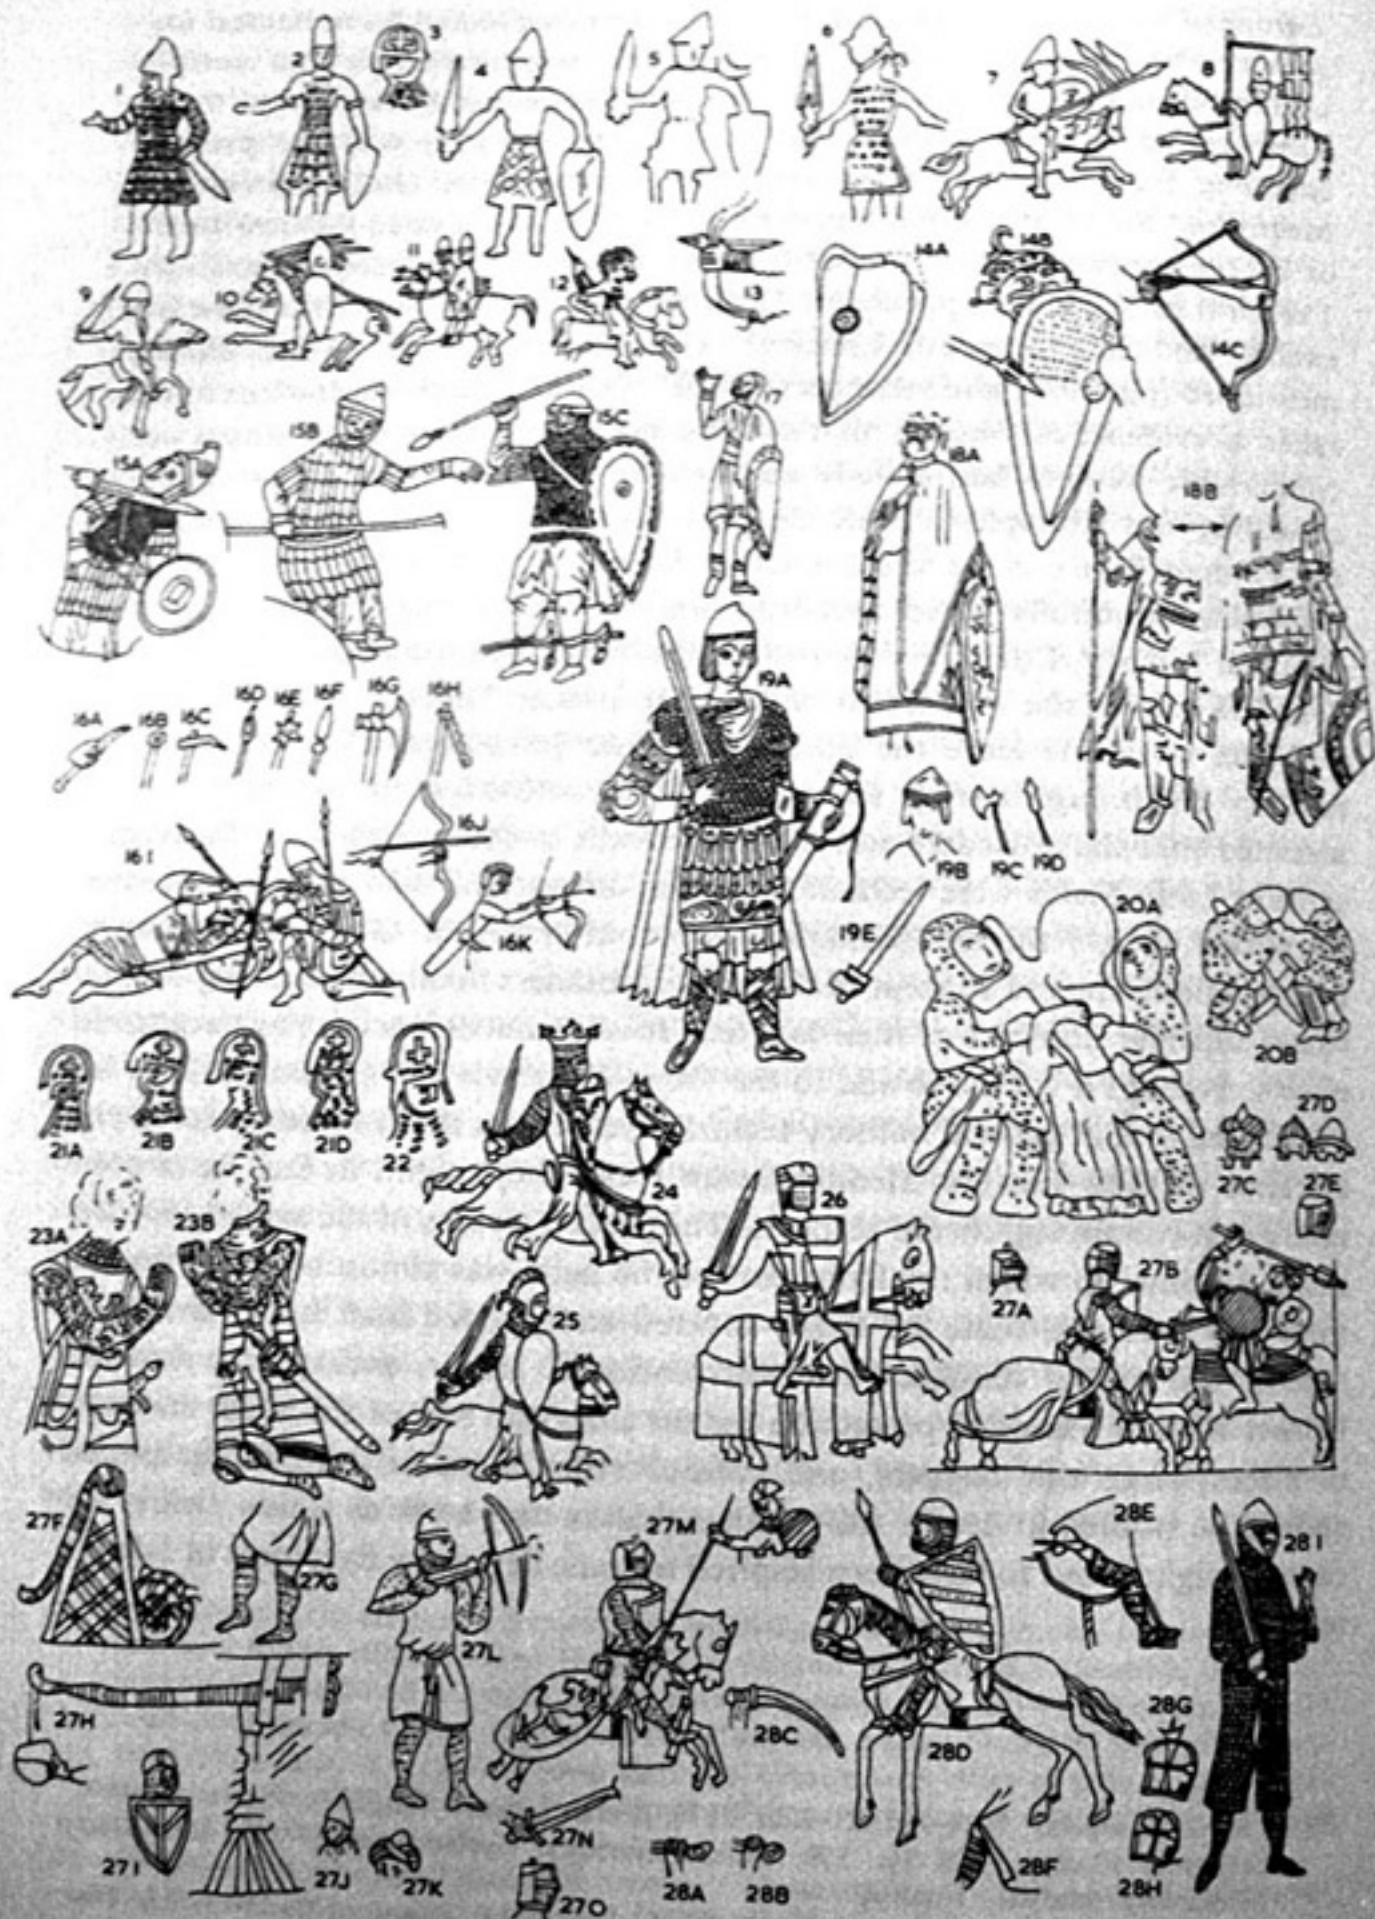 1 2 3 4 5 6 7 8
9 10 11 12 13 14A 14B 14C
15A 15B 15C 17 18A 18B
16A 16B 16C 16D 16E 16F 16G 16H 19A
16I 16J 16K 19B 19C 19D 19E
20A 20B
21A 21B 21C 21D 22 24 27C 27D 27E
23A 23B 25 26 27A 27B
27F 27G 27L 27M 28D 28E 28I
27H 28C 28G
27I 27J 27K 27N 27O 28A 28B 28F 28H